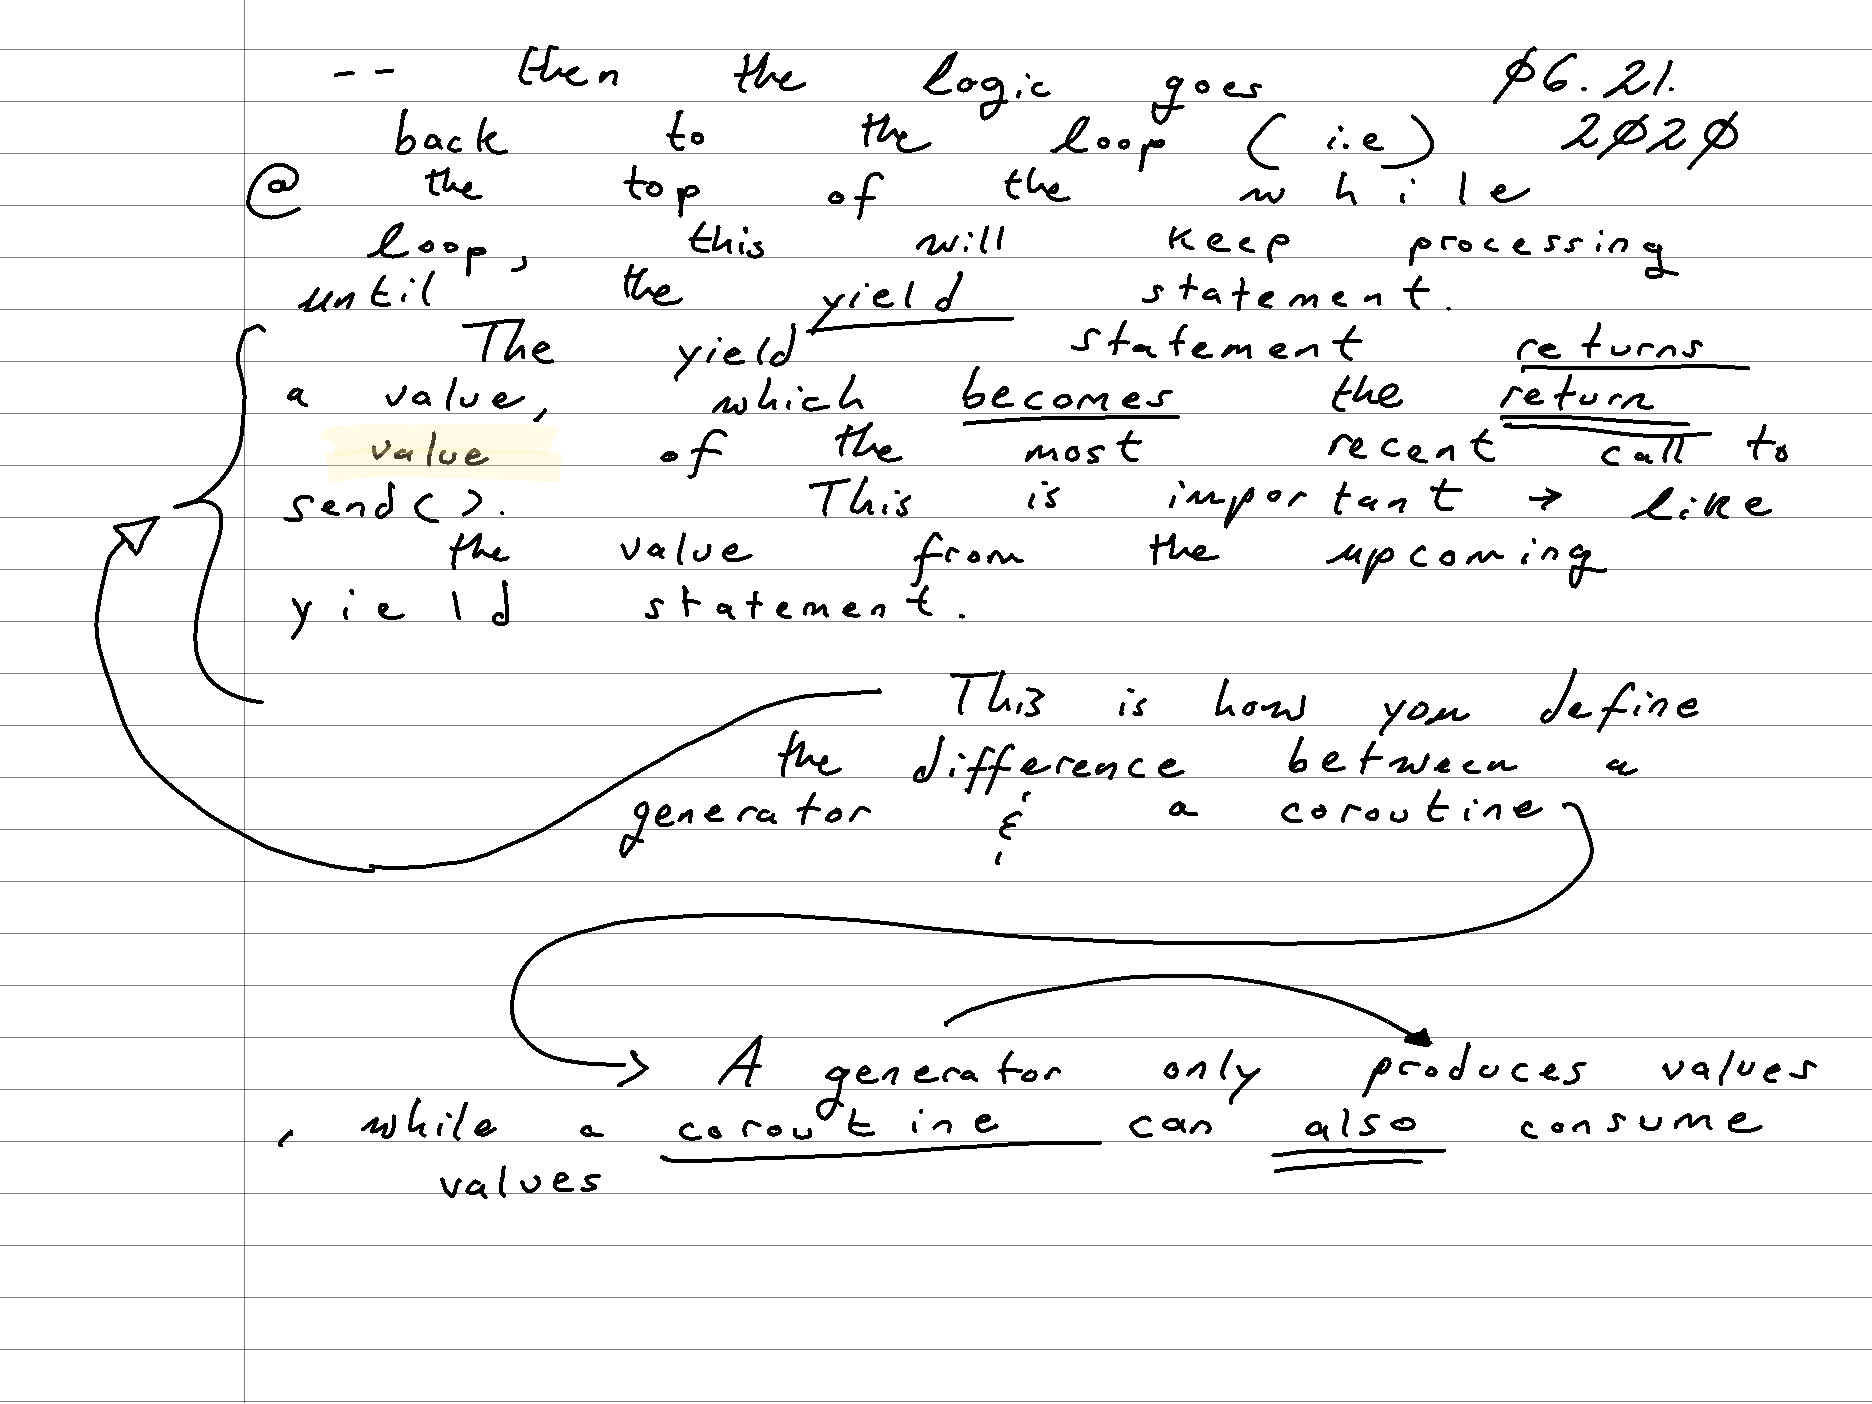 -- then the logic goes 06.21.
back to the loop (i.e) 2020
@ the top of the while
loop, this will keep processing
until the yield statement.
The yield statement returns
a value, which becomes the return
value of the most recent call to
send(). This is important → like
the value from the upcoming
yield statement.
This is how you define
the difference between a
generator & a coroutine
A generator only produces values
, while a coroutine can also consume
values